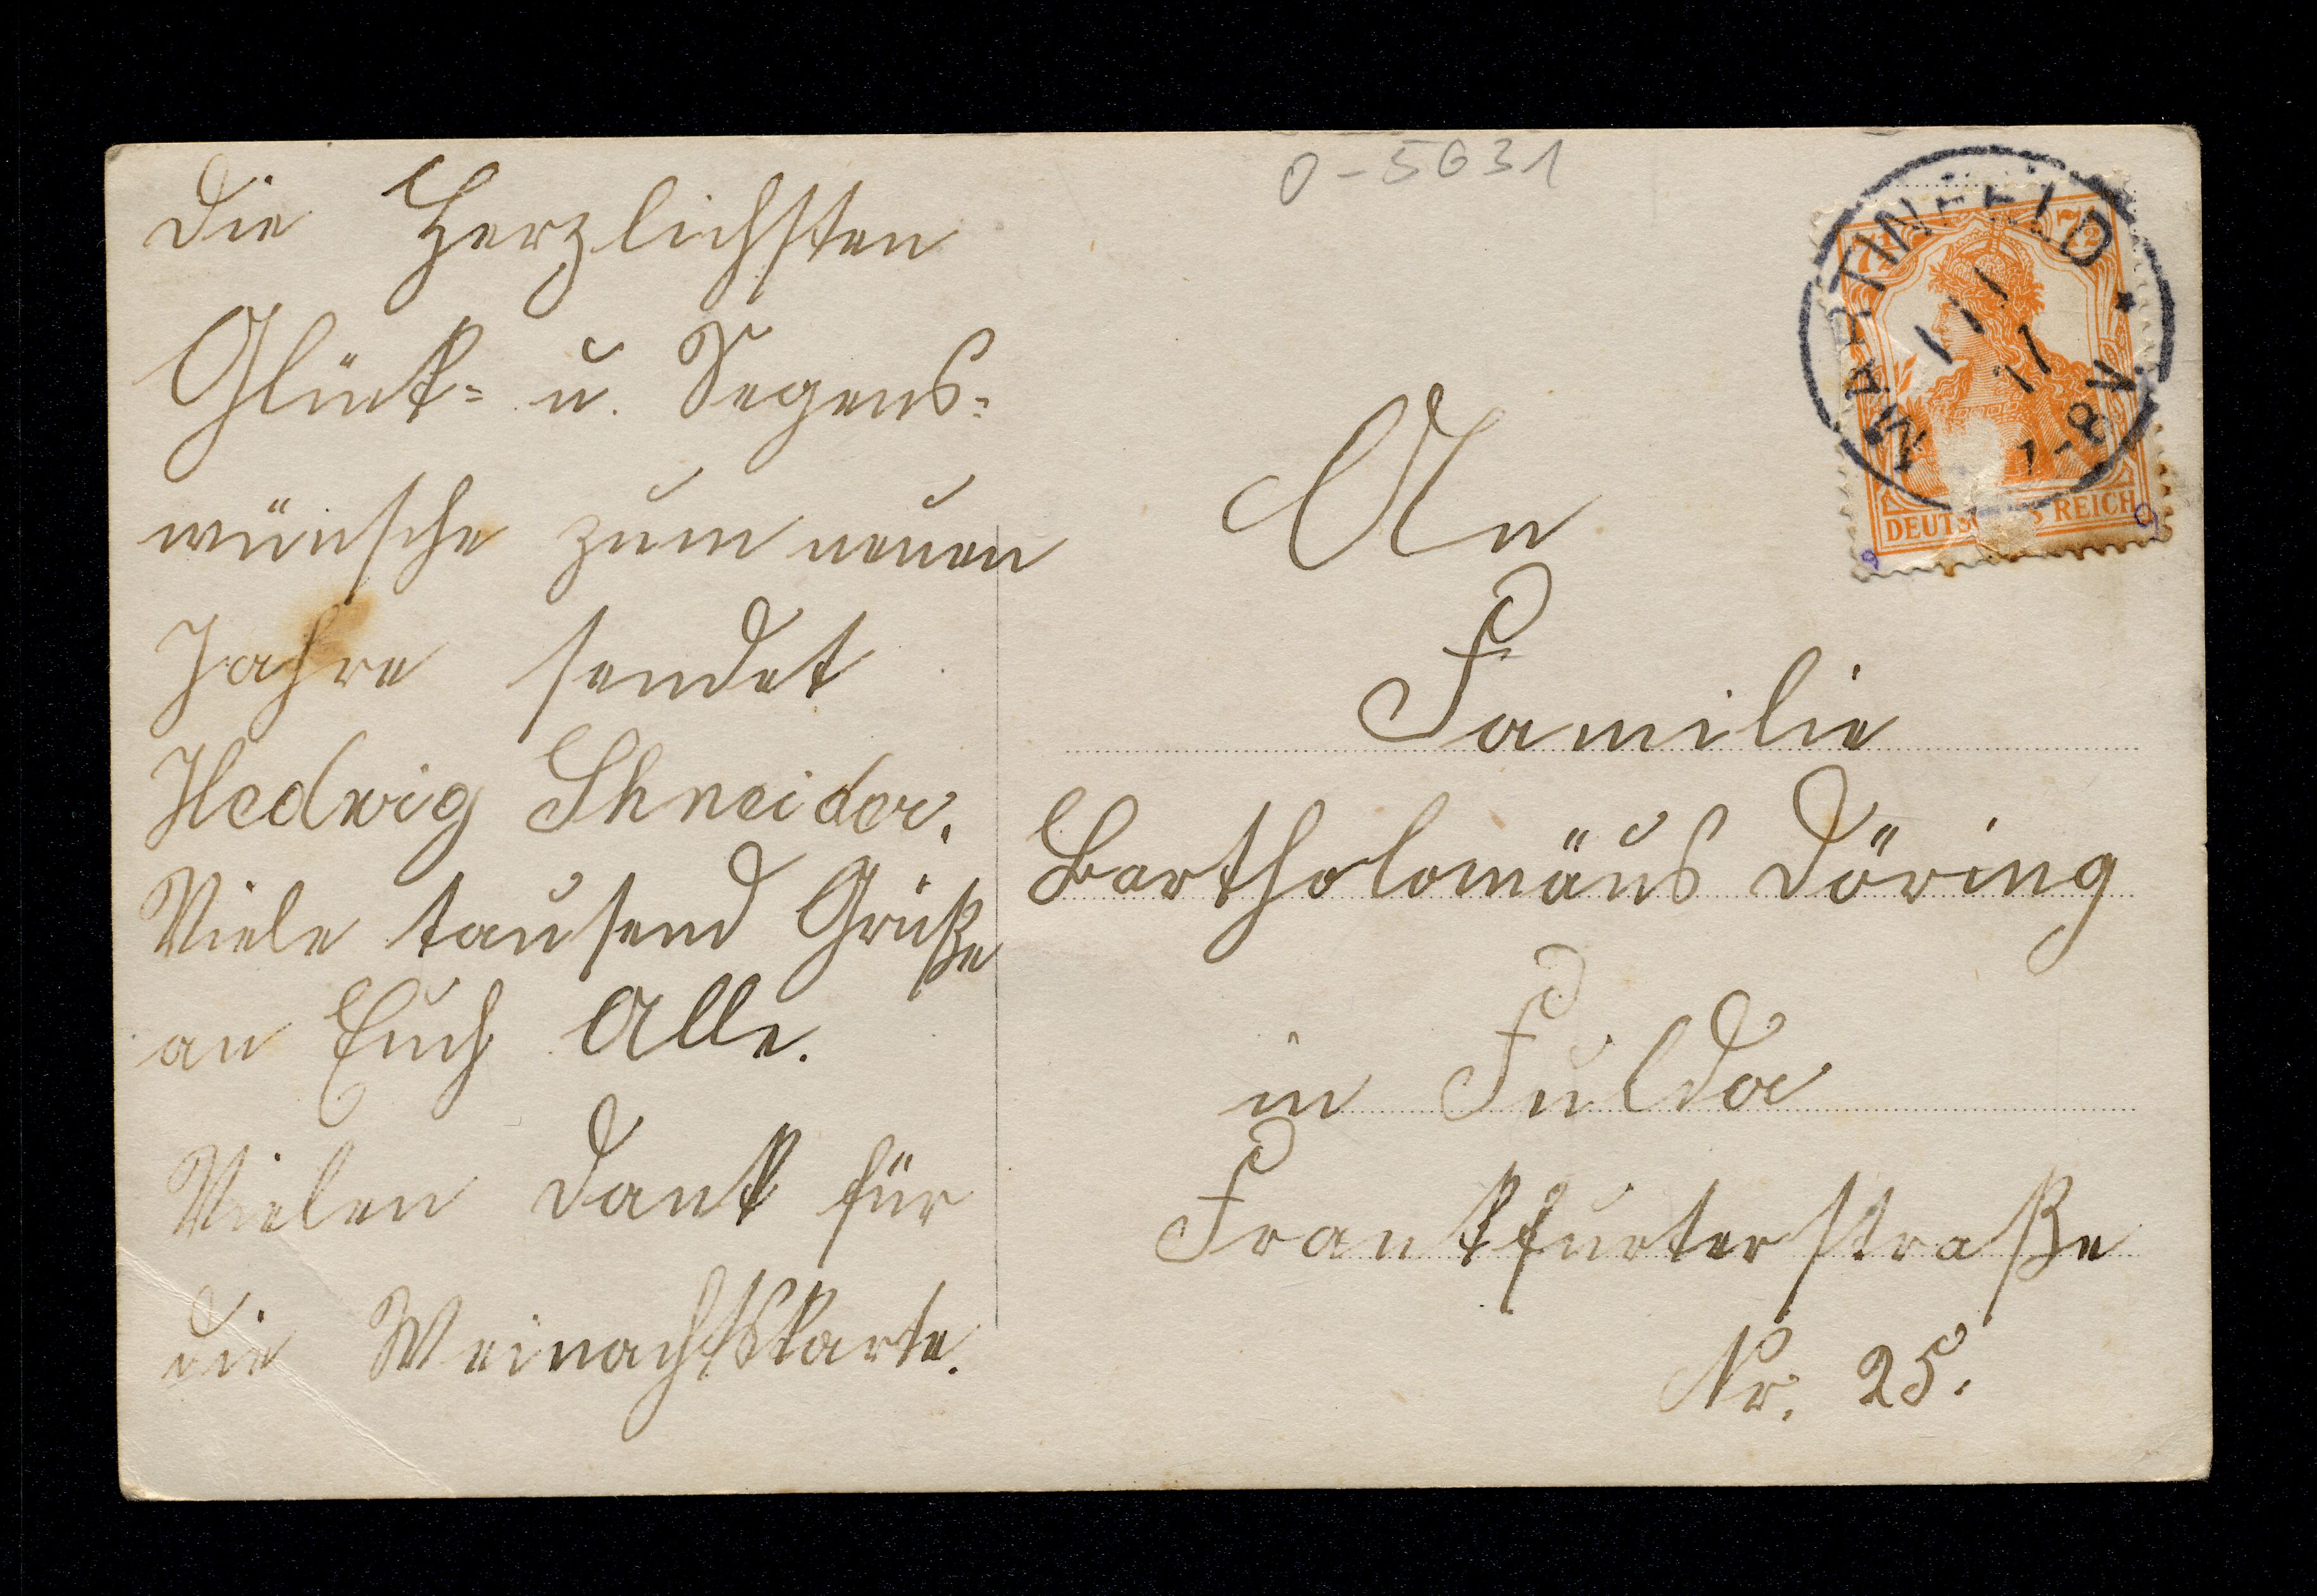 Die Herzlichsten
Glück= u. Segens=
wünsche zum neuen
Jahre sendet
Hedwig Shneider.
Viele tausend Grüße
an Euch Alle.
Vielen Dank für
die Weinachtskarte.
0-5631
MARTINFELD
1 1 1
17
7-8V
7½ 7½
DEUTSCHES REICH
An
Familie
Bartholomäus Döring
in Fulda
Frankfurterstraße
Nr. 25.